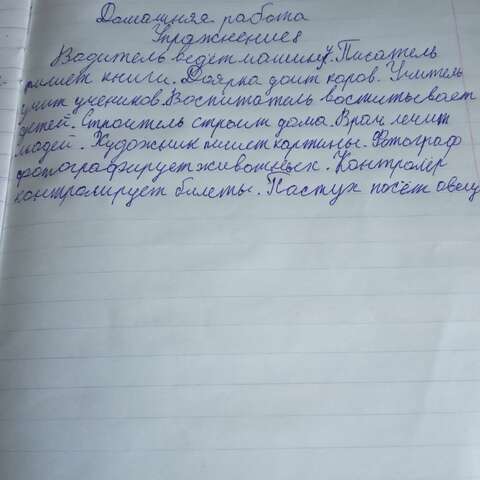 Домашняя работа
Упражнение 8
Водитель ведет машину. Писатель
пишет книги. Доярка доит коров. Учитель
учит учеников. Воспитатель воспитывает
детей. Строитель строит дома. Врач лечит
людей. Художник пишет картины. Фотограф
фотографирует животных. Контролер
контролирует билеты. Пастух пасёт овец